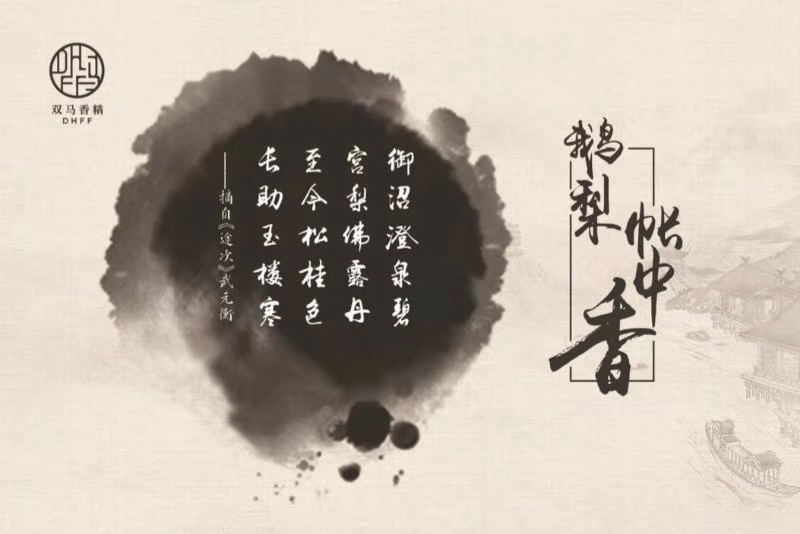 DHFF
双马香精
DHFF
御沼澄泉碧
宫梨佛露丹
至今松桂色
长助玉楼寒
——摘自《途次》武元衡
鹅梨
帐中
香